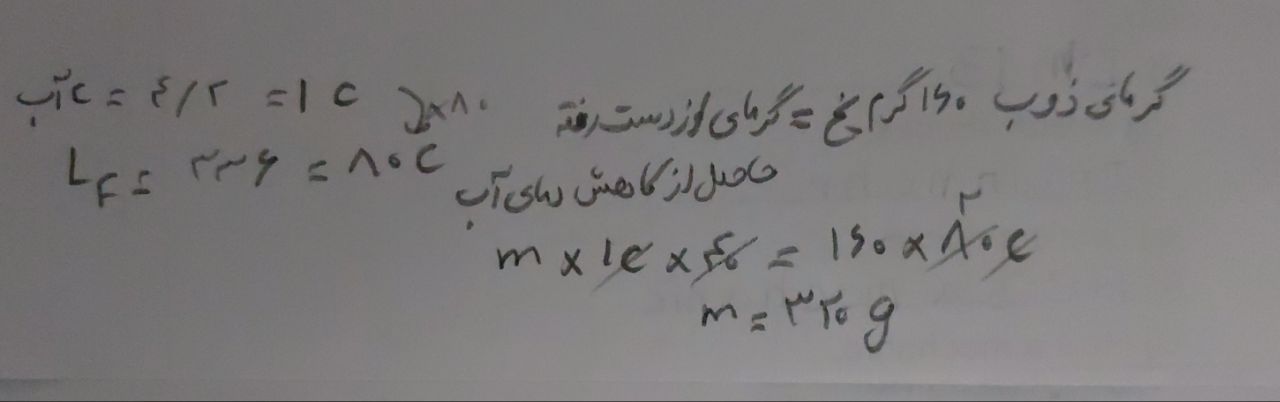 گرمای ذوب ۱۶۰ گرم یخ = گرمای از دست رفته
حاصل از کاهش دمای آب
C آب = ۴/۲ = ۱ C
L_F = ۳۳۶ = ۸۰ C
×۸۰
m × ۱C × ۴۰ = ۱۶۰ × ۸۰ C
۲
m = ۳۲۰ g